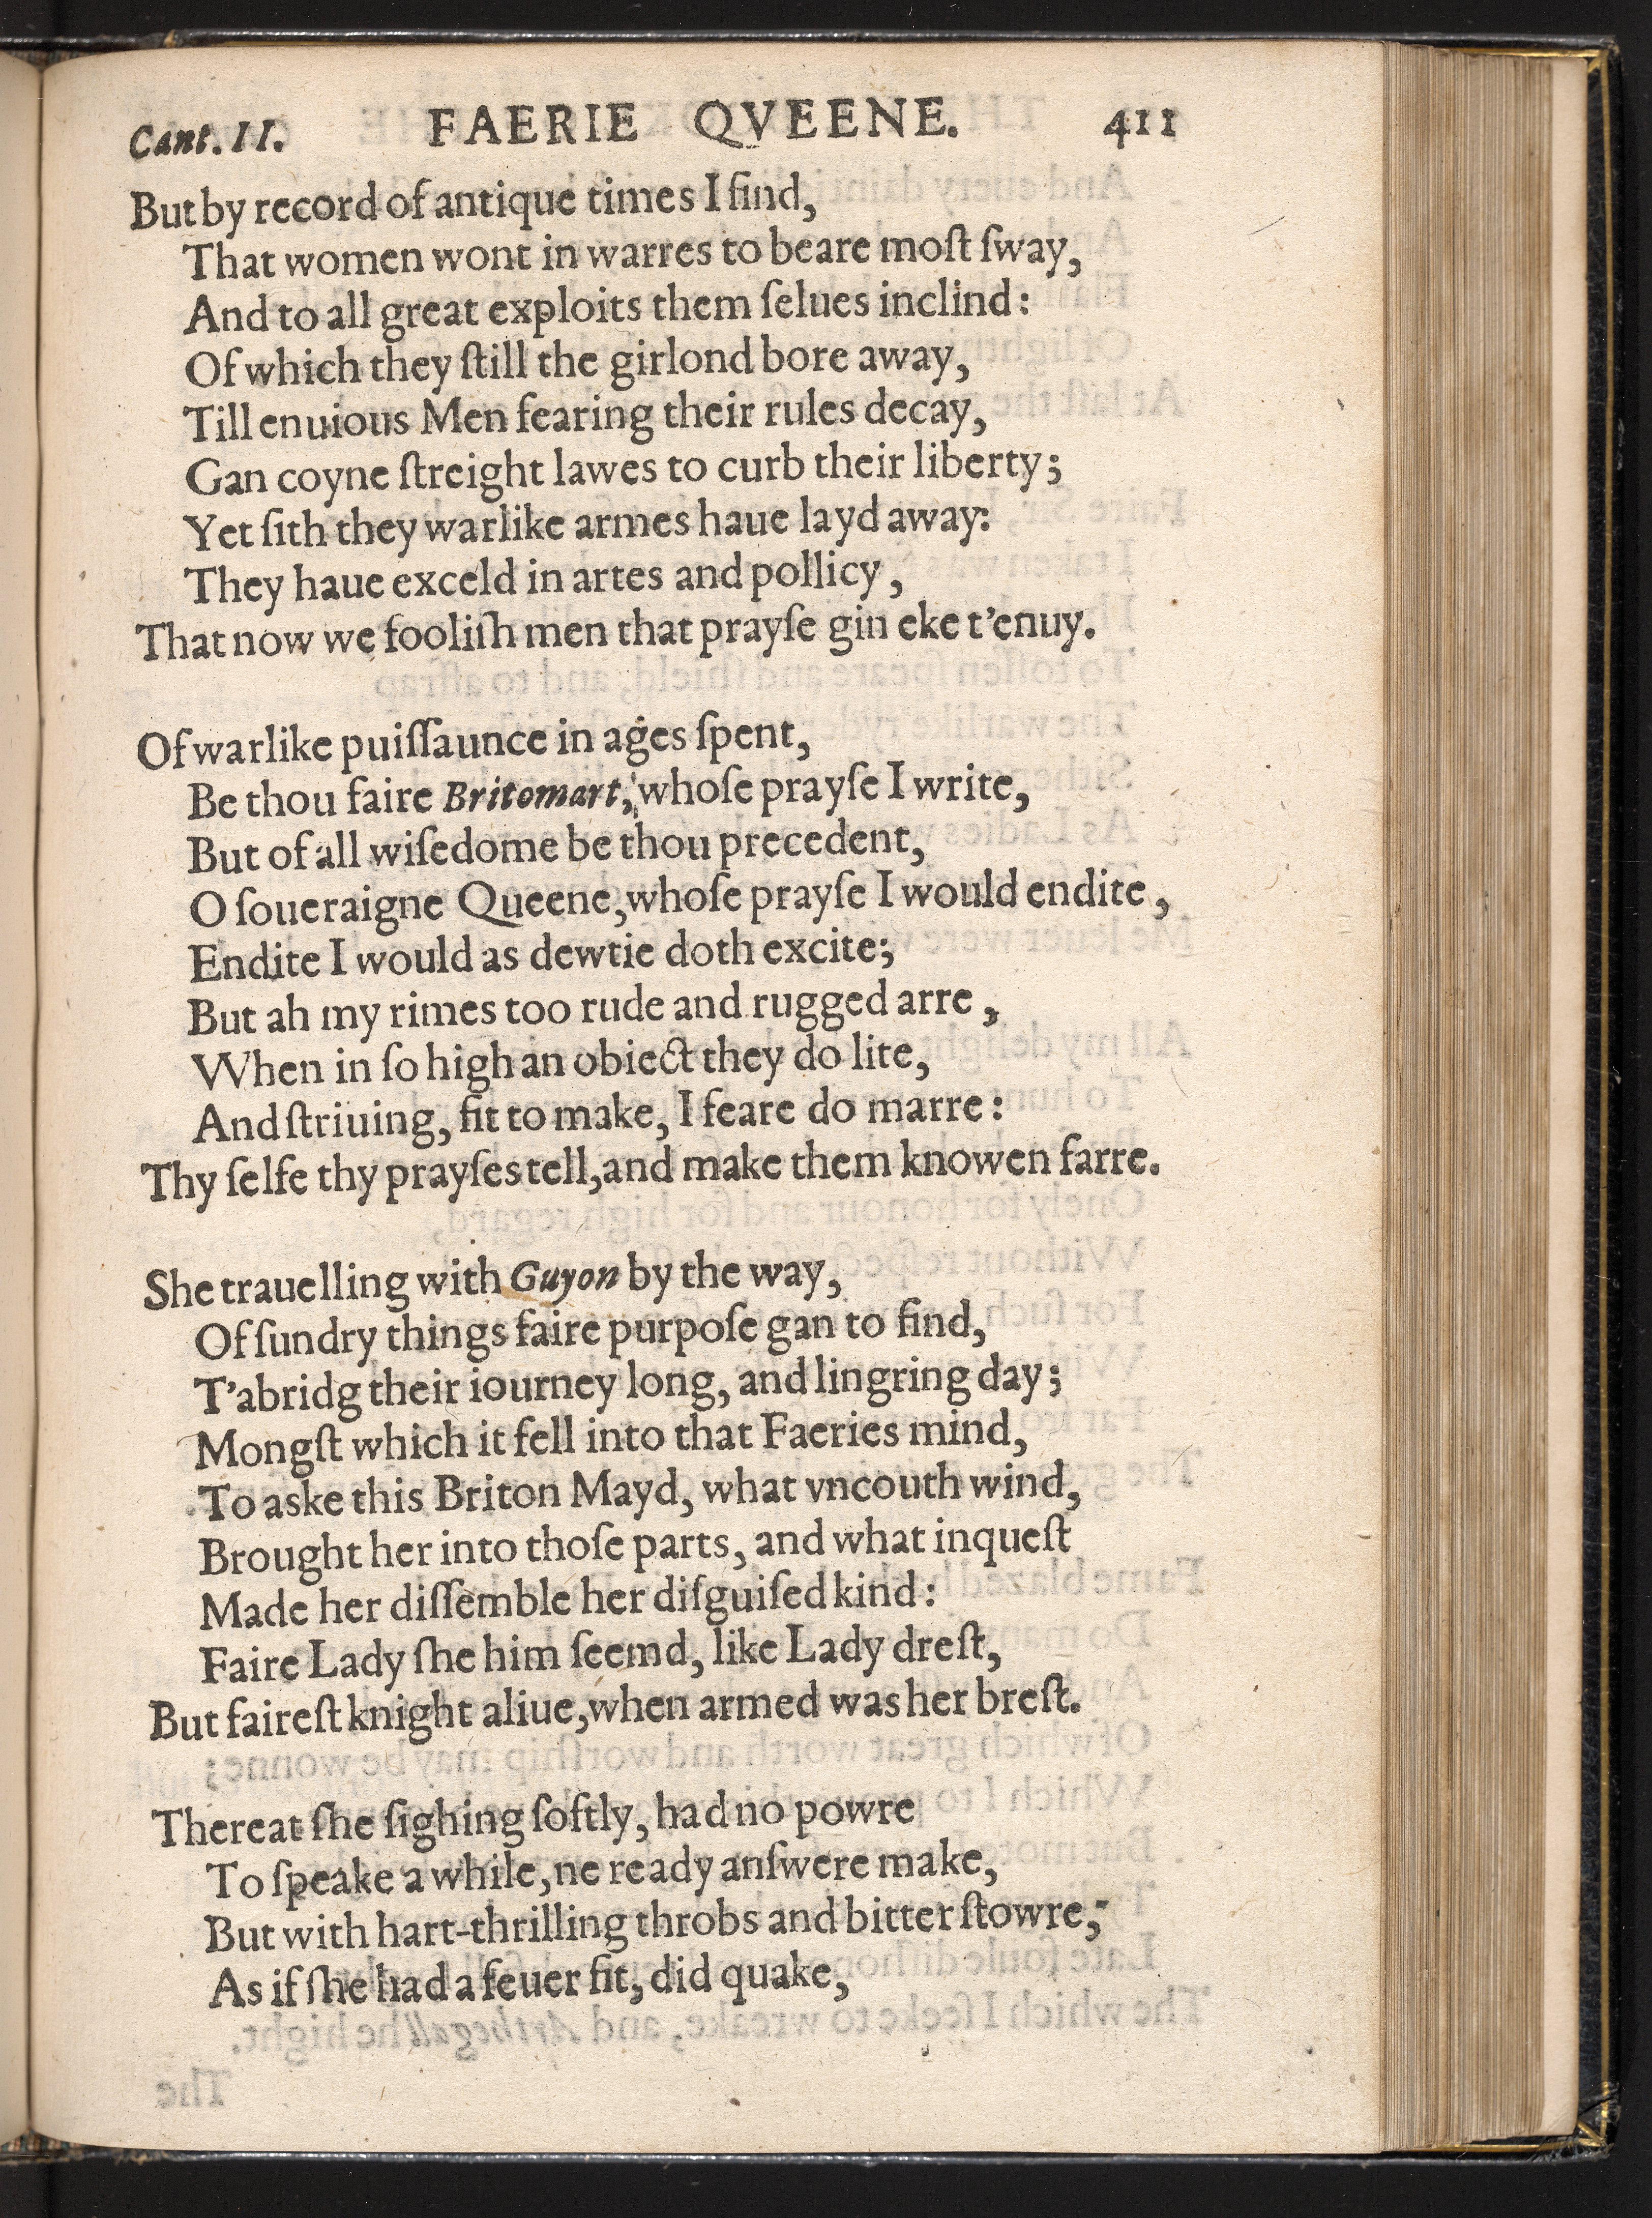 Cant. II. FAERIE QVEENE. 411
But by record of antique times I find,
That women wont in warres to beare moſt ſway,
And to all great exploits them ſelues inclind:
Of which they ſtill the girlond bore away,
Till enuious Men fearing their rules decay,
Gan coyne ſtreight lawes to curb their liberty;
Yet ſith they warlike armes haue layd away:
They haue exceld in artes and pollicy,
That now we fooliſh men that prayſe gin eke t'enuy.
Of warlike puiſſaunce in ages ſpent,
Be thou faire Britomart, whoſe prayſe I write,
But of all wiſedome be thou precedent,
O ſoueraigne Queene, whoſe prayſe I would endite,
Endite I would as dewtie doth excite;
But ah my rimes too rude and rugged arre,
When in ſo high an obiect they do lite,
And ſtriuing, fit to make, I feare do marre:
Thy ſelfe thy prayſes tell, and make them knowen farre.
She trauelling with Guyon by the way,
Of ſundry things faire purpoſe gan to find,
T'abridg their iourney long, and lingring day;
Mongſt which it fell into that Faeries mind,
To aske this Briton Mayd, what vncouth wind,
Brought her into thoſe parts, and what inqueſt
Made her diſſemble her diſguiſed kind:
Faire Lady ſhe him ſeemd, like Lady dreſt,
But faireſt knight aliue, when armed was her breſt.
Thereat ſhe ſighing ſoftly, had no powre
To ſpeake a while, ne ready anſwere make,
But with hart-thrilling throbs and bitter ſtowre,
As if ſhe had a feuer fit, did quake,